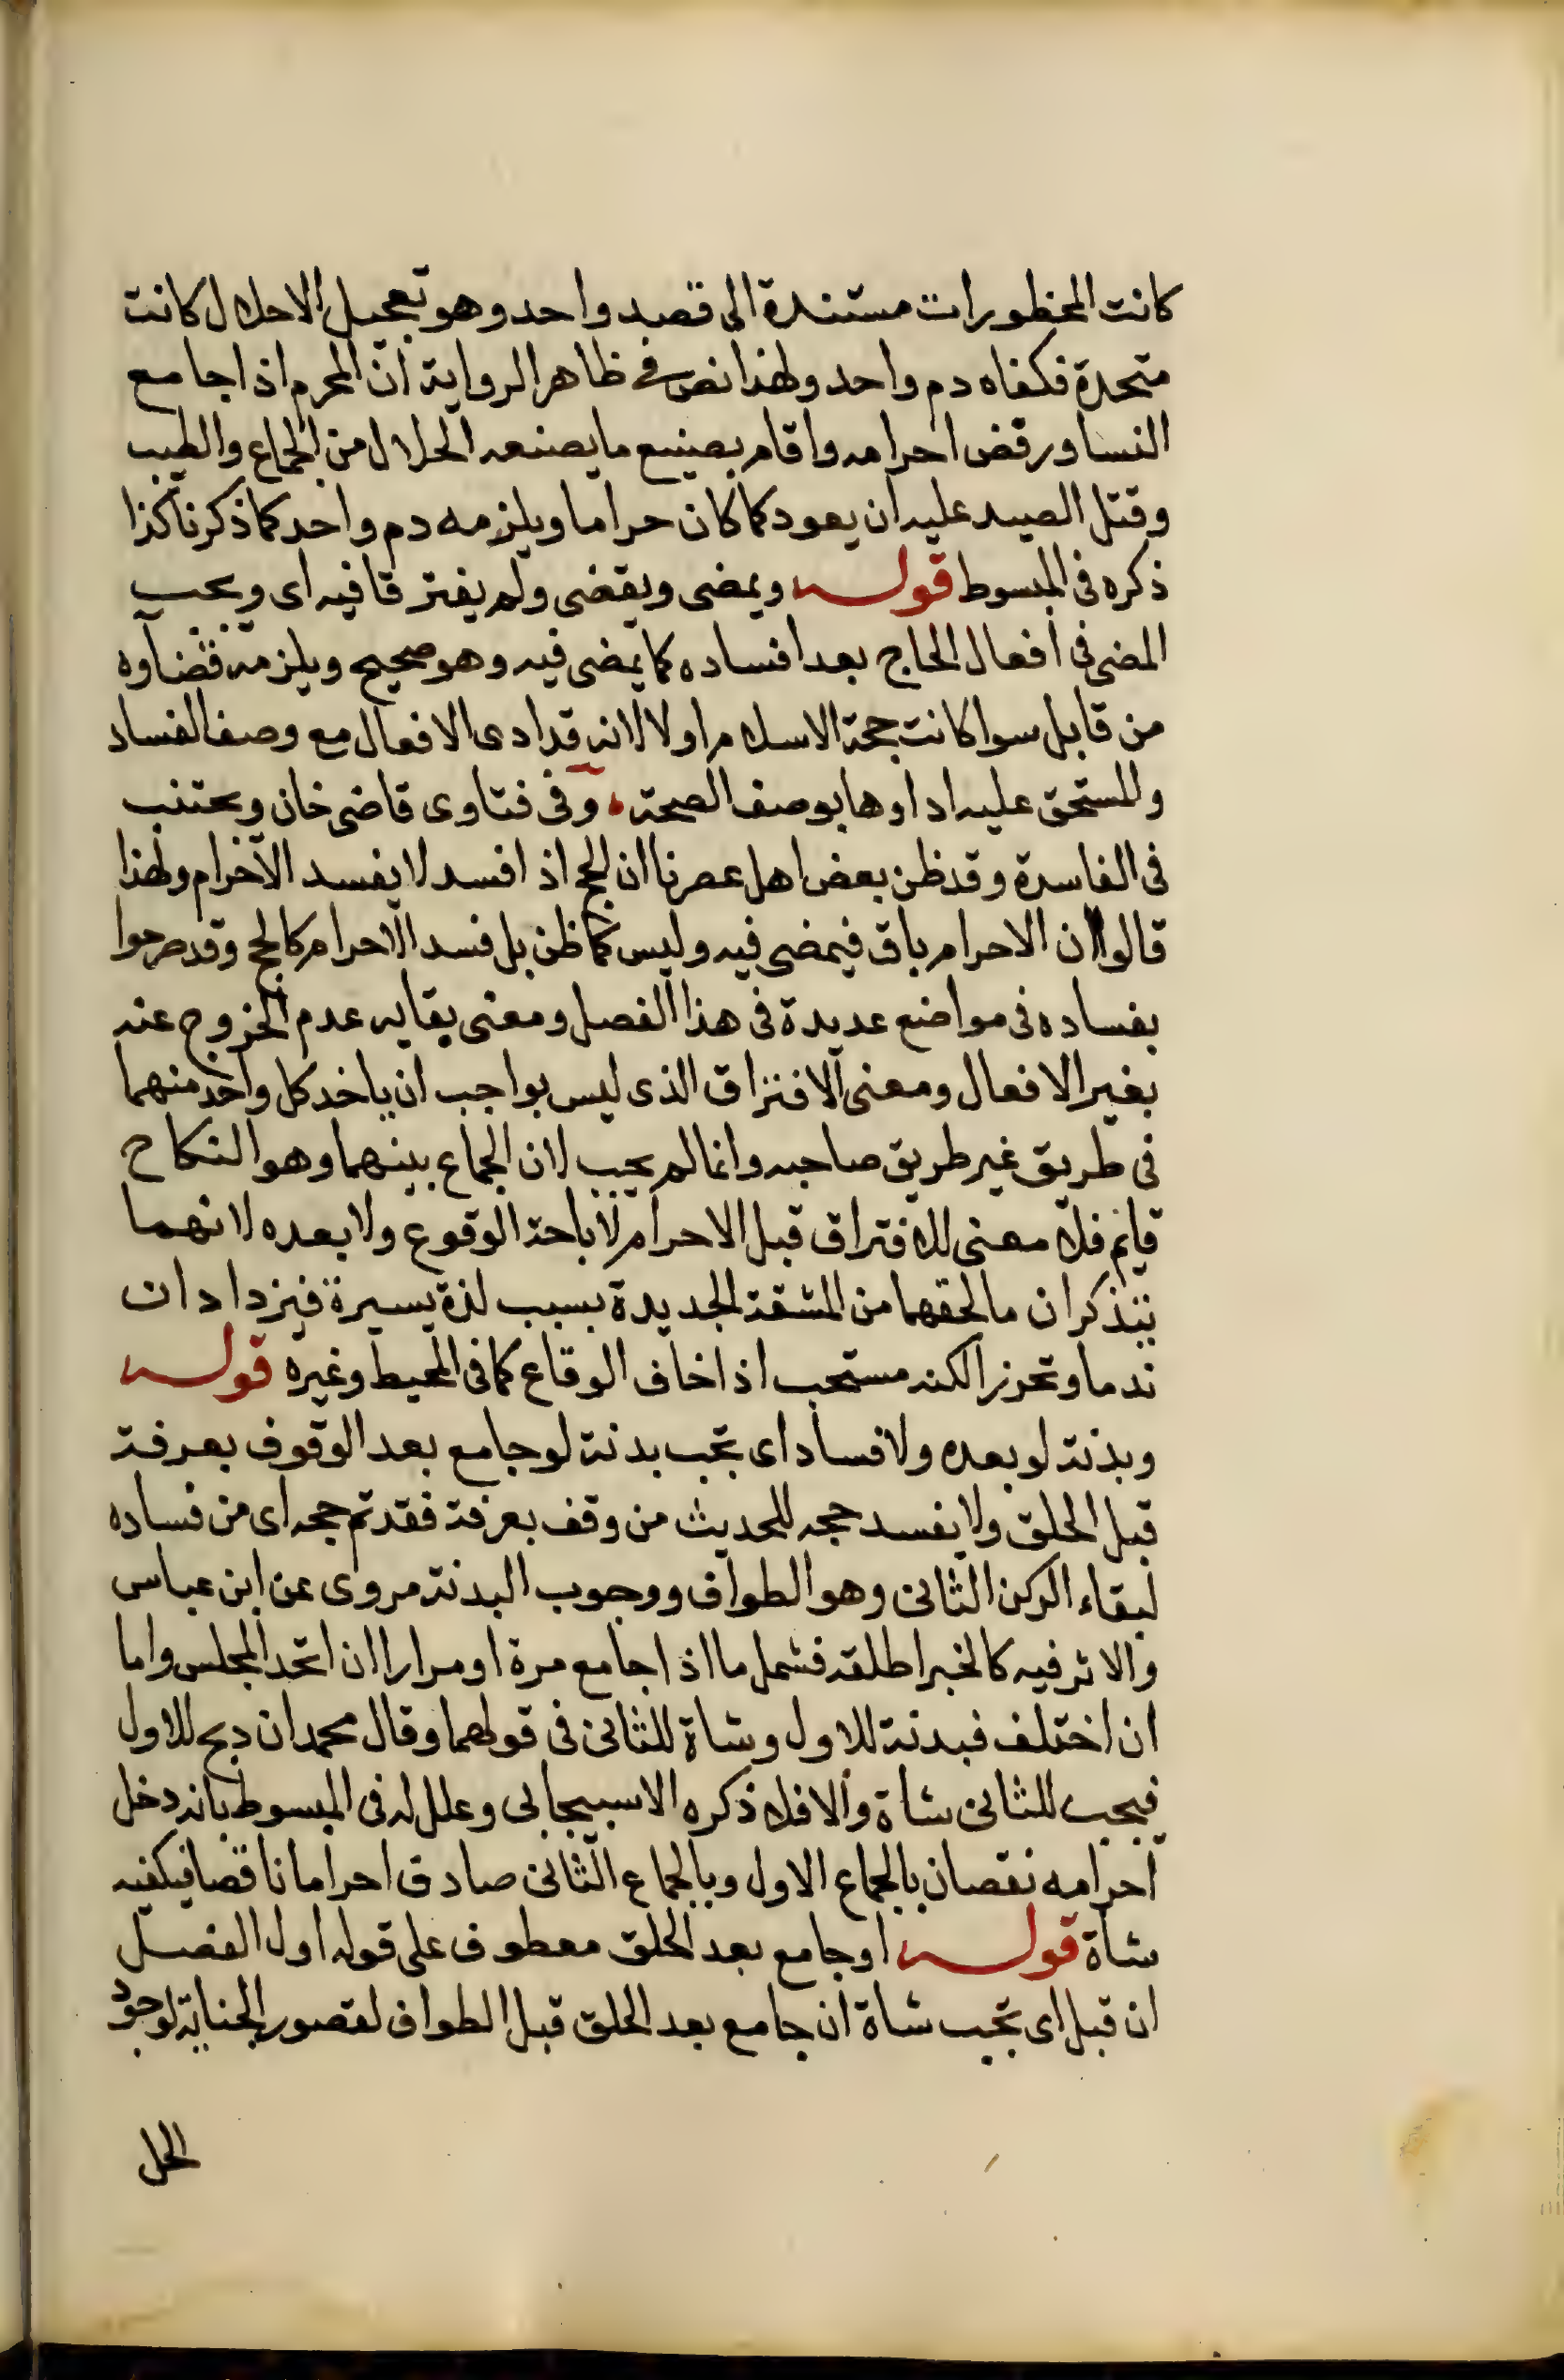 كانت المحظورات مستندة الى قصد واحد وهو تعجيل الاحلال كانت
متحدة فكفاه دم واحد ولهذا نص في ظاهر الرواية ان المحرم اذا جامع
النسا ورفض احرامه واقام يصنع ما يصنعه الحلال من الجماع والطيب
وقتل الصيد عليه ان يعود كما كان حراما ويلزمه دم واحد كما ذكرنا كذا
ذكره في المبسوط قوله ويمضى ويقضى ولم يفترقا فيه اى ويجب
المضى في افعال الحاج بعد افساده كما يمضى فيه وهو صحيح ويلزمه قضاوه
من قابل سوا كانت حجة الاسلام اولا لانه قد ادى الافعال مع وصف الفساد
والمستحق عليه اداوها بوصف الصحة وفى فتاوى قاضى خان ويجتنب
فى الفاسدة وقد ظن بعض اهل عصرنا ان الحج اذا فسد لا يفسد الاحرام ولهذا
قالوا ان الاحرام باق فيمضى فيه وليس كما ظن بل فسد الاحرام كالحج وقد صرحوا
بفساده فى مواضع عديدة فى هذا الفصل ومعنى بقايه عدم الخروج عنه
بغير الافعال ومعنى الافتراق الذى ليس بواجب ان ياخد كل واحد منهما
فى طريق غير طريق صاحبه وانما لم يجب لان الجماع بينهما وهو النكاح
قايم فلا معنى للافتراق قبل الاحرام لاباحة الوقوع ولا بعده لانهما
يتذكران ما لحقهما من المشقة الجديدة بسبب لذة يسيرة فيزدادان
ندما وتحرزا لكنه مستحب اذا خاف الوقاع كما فى المحيط وغيره قوله
وبدنة لو بعده ولا فساد اى تجب بدنة لو جامع بعد الوقوف بعرفة
قبل الحلق ولا يفسد حجه للحديث من وقف بعرفة فقد تم حجه اى من فساده
لبقاء الركن الثانى وهو الطواف ووجوب البدنة مروى عن ابن عباس
والاثر فيه كالخبر اطلقه فشمل ما اذا جامع مرة او مرارا ان اتحد المجلس واما
ان اختلف فبدنة للاول وشاة للثانى فى قولهما وقال محمد ان دبح للاول
فيجب للثانى شاة والا فلا ذكره الاسبيجابى وعلل له فى المبسوط بانه دخل
احرامه نقصان بالجماع الاول وبالجماع الثانى صادف احراما ناقصا فيكفيه
شاة قوله او جامع بعد الحلق معطوف على قوله اول الفصل
ان قبل اى تجب شاة ان جامع بعد الحلق قبل الطواف لقصور الجناية لوجود
الحل